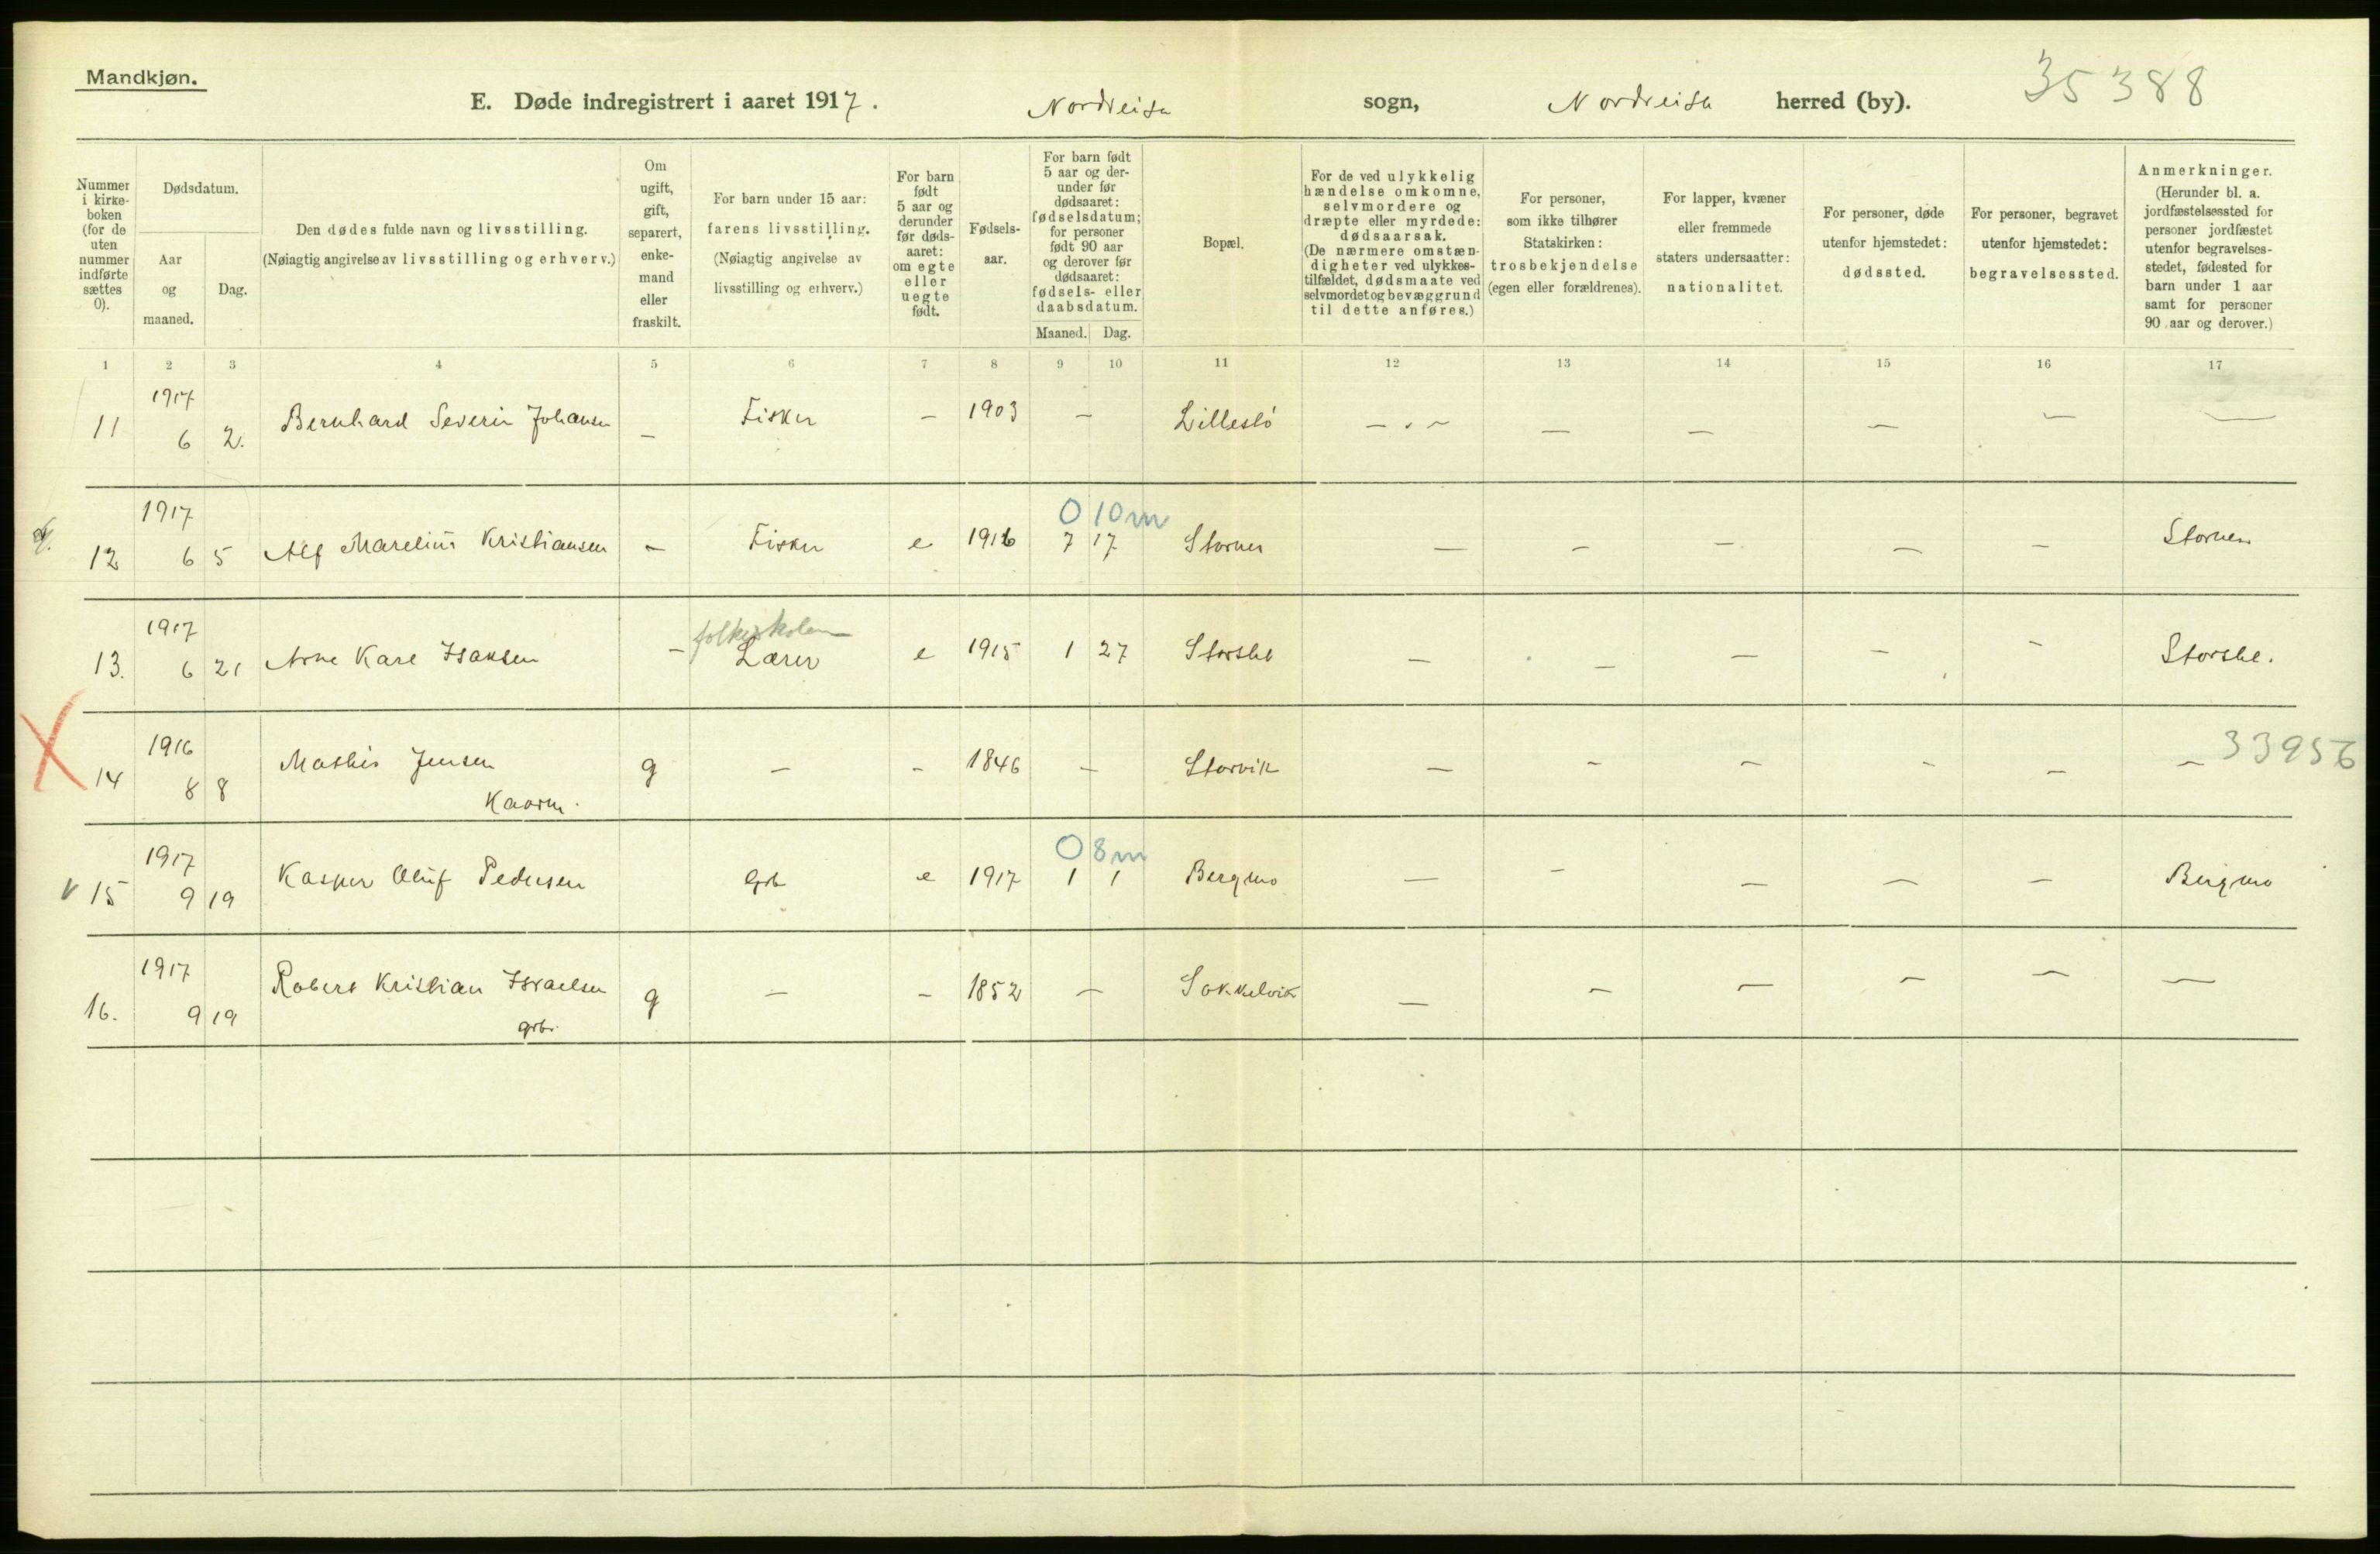 Mandkjøn.
35388
E. Døde indregistrert i aaret 1917. Nordreisa sogn, Nordreisa herred (by).
Nummer i kirke-boken (for de uten nummer indførte sættes 0).
Dødsdatum.
Aar og maaned.
Dag.
Den dødes fulde navn og livsstilling.
(Nøiagtig angivelse av livsstilling og erhverv.)
Om ugift, gift, separert, enke-mand eller fraskilt.
For barn under 15 aar:
farens livsstilling.
(Nøiagtig angivelse av
livsstilling og erhverv.)
For barn født 5 aar og derunder før døds-aaret: om egte eller uegte født.
Fødsels-aar.
For barn født 5 aar og der-under før dødsaaret: fødselsdatum; for personer født 90 aar og derover før dødsaaret: fødsels- eller daabsdatum.
Maaned. Dag.
Bopæl.
For de ved ulykkelig hændelse omkomne, selvmordere og dræpte eller myrdede: dødsaarsak.
(De nærmere omstæn-digheter ved ulykkes-tilfældet, dødsmaate ved selvmordet og bevæggrund til dette anføres.)
For personer, som ikke tilhører Statskirken: trosbekjendelse (egen eller forældrenes).
For lapper, kvæner eller fremmede staters undersaatter: nationalitet.
For personer, døde utenfor hjemstedet: dødssted.
For personer, begravet utenfor hjemstedet: begravelsessted.
Anmerkninger.
(Herunder bl. a. jordfæstelsessted for personer jordfæstet utenfor begravelses-stedet, fødested for barn under 1 aar samt for personer 90 aar og derover.)
1 2 3 4 5 6 7 8 9 10 11 12 13 14 15 16 17
1917
11 6 2. Bernhard Severin Johansen — Fisker — 1903 — Lilleslö — . — — — — — —
1917 0 10 m
12 6 5 Alf Marelius Kristiansen — Fisker e 1916 7 17 Stornes — — — — — Stornes
1917 folkeskolen
13. 6 21 Arne Kare Isaksen — Lærer e 1915 1 27 Storslet — — — — — Storsle.
1916 33956
14 8 8 Mathis Jensen g — — 1846 — Storvik — — — — — —
Kaarm.
1917 0 8 m
15 9 19 Kasper Oluf Pedersen Grb e 1917 1 1 Bergmo — — — — — Bergmo
1917
16. 9 19 Robert Kristian Israelsen g — — 1852 — Sokkelvik — — — — — —
grb.